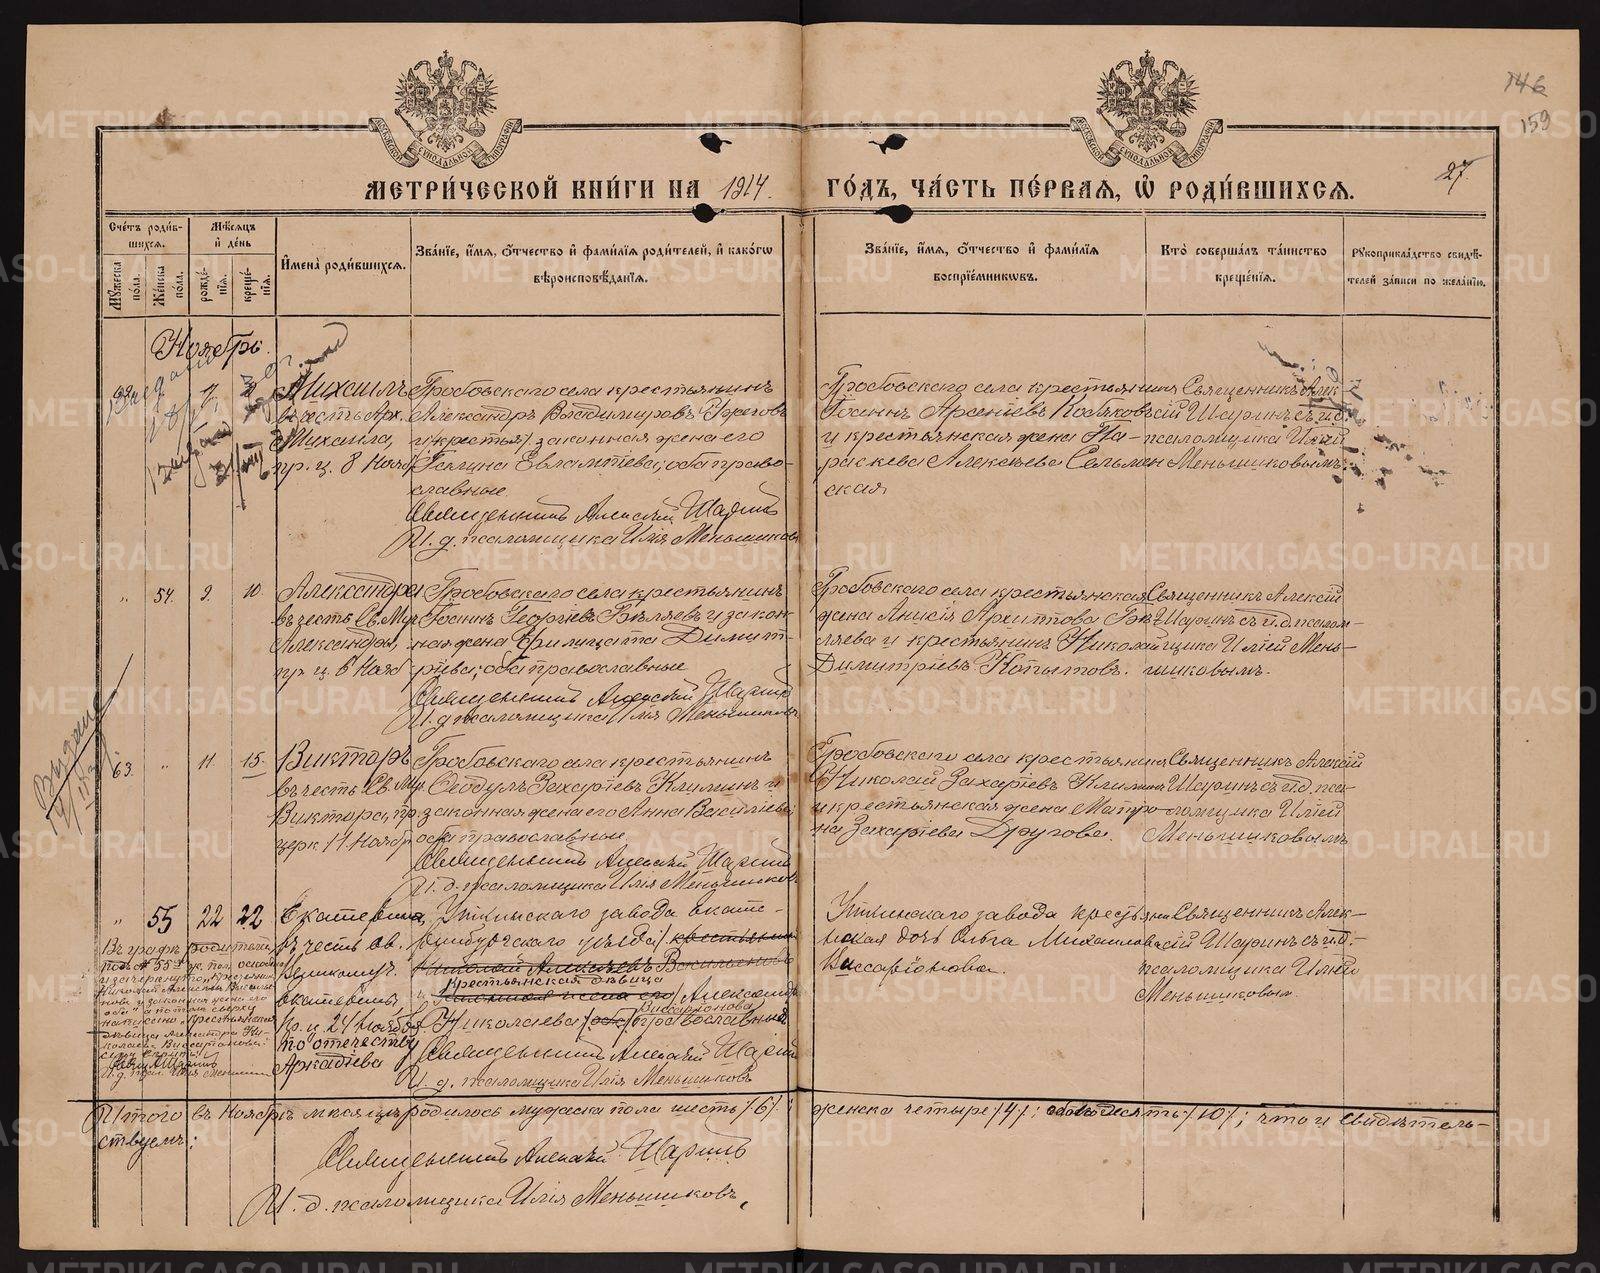 146
159
27
МОСКОВСКОЙ СѴНОДАЛЬНОЙ ТИПОГРАФІИ
МОСКОВСКОЙ СѴНОДАЛЬНОЙ ТИПОГРАФІИ
МЕТРИ́ЧЕСКОЙ КНИ́ГИ НА 1914. ГО́ДЪ, ЧА́СТЬ ПЕ́РВАЯ, Ѡ҆ РОДИ́ВШИХСЯ.
Сче́тъ роди́в-
шихся.
Мѣ́сяцъ
и҆ де́нь
Мꙋ́жеска
по́ла.
Же́нска
по́ла.
рожде́-
нїя.
креще́-
нїя.
И҆мена̀ роди́вшихся.
Зва́нїе, и҆́мя, ѻ҆́тчество и҆ фами́лїя роди́телей, и҆ како́гѡ
вѣроисповѣ́данїя.
Зва́нїе, и҆́мя, ѻ҆́тчество и҆ фами́лїя
воспрїе́мникѡвъ.
Кто̀ соверша́лъ та́инство
креще́нїя.
Рꙋкоприкла́дство свидѣ́-
телей за́писи по жела́нїю.
Ноябрь.
Михаилъ
въ честь Арх.
Михаила,
пр. ц. 8 Нояб
Гробовскаго села крестьянинъ
Александръ Владимировъ
и /крестья/ законная жена его
Галина Евлампіева; оба право-
славные.
Священникъ Алексій Шаринъ
И. д. псаломщика Илія Меньшиковъ
Гробовскаго села крестьянинъ
Іоаннъ Арсеніевъ Кобяковъ
и крестьянская жена Па-
раскева Алексѣева Сельмен
ская
Священникъ Алек-
сій Шаринъ съ и. д.
псаломщика Иліей
Меньшиковымъ.
„ 54. 9. 10.
Александра
въ честь Св. Муч
Александры,
пр. ц. 6 Нояб
Гробовскаго села крестьянинъ
Іоаннъ Георгіевъ Бѣляевъ и закон
ная жена Филицата Димит-
ріева; оба православные
Священникъ Алексій Шаринъ
И. д. псаломщика Илія Меньшиковъ
Гробовскаго села крестьянская
жена Анисія Архиптова Бѣ-
ляева и крестьянинъ Николай
Димитріевъ Копытовъ.
Священникъ Алексій
Шаринъ съ и. д. псалом-
щика Иліей Мень-
шиковымъ.
Выдано
63. „ 11. 15.
Викторъ
въ честь Св. Муч
Виктора, пр.
церк 11 Нояб
Гробовскаго села крестьянинъ
Ѳеодулъ Захаріевъ Климинъ и
законная жена его Анна Василіева
оба православные
Священникъ Алексій Шаринъ
И. д. псаломщика Илія Меньшиковъ
Гробовскаго села крестьянинъ
Николай Захаріевъ Климинъ
и крестьянская жена Матро-
на Захаріева Другова.
Священникъ Алексій
Шаринъ съ и. д. пса-
ломщика Иліей
Меньшиковымъ
„ 55 22 22
Екатерина,
въ честь св.
Великомуч.
Екатерины
пр. ц. 24 Нояб
по отечеству
Аркадіева
Уткинскаго завода Екате-
ринбургскаго уѣзда /крестьянинъ
Николай Алексѣевъ Васильевъ
крестьянская дѣвица
и законная жена его/ Александра
Виссаріонова
Николаева /оба/ православный
Священникъ Алексій Шаринъ
И. д. псаломщика Илія Меньшиковъ
Уткинскаго завода крестьян
ская дочь Ольга Михаилова
Виссаріонова.
Священникъ Алек-
сій Шаринъ съ и. д.
псаломщика Иліей
Меньшиковым.
Въ графѣ родителей
подъ № 55
Итого въ Ноябрѣ мѣсяцѣ родилось мужеска пола шесть /6/; женска четыре /4/; обоего десять /10/; что и свидѣтель-
ствуемъ:
Священникъ Алексій Шаринъ
И. д. псаломщика Илія Меньшиковъ.